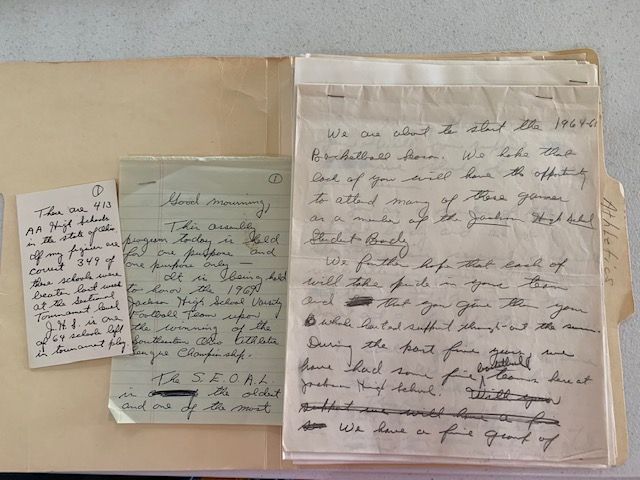 ①
There are 413
AA High Schools
in the state of Ohio.
If my figures are
correct 349 of
these schools were
beaten last week
at the Sectional
Tournament level
J.H.S. is one
of 64 schools left
in tournament play
①
Good mourning,
This assembly
program today is held
for one purpose and
one purpose only —
It is being held
to honor the 1969
Jackson High School Varsity
Football Team upon
the winning of the
Southeastern Ohio Athletic
League Championship.
The S.E.O.A.L.
is the oldest
and one of the most
We are about to start the 1964-6
Basketball Season. We hope that
each of you will have the opportunity
to attend many of these games
as a member of the Jackson High School
Student Body
We further hope that each of
will take pride in your team
and that you give them your
whole hearted support through-out the season.
During the past five years we
have had some fine baseball teams here at
Jackson High School. With your
support we will have a fi
We have a fine group of
Athletics